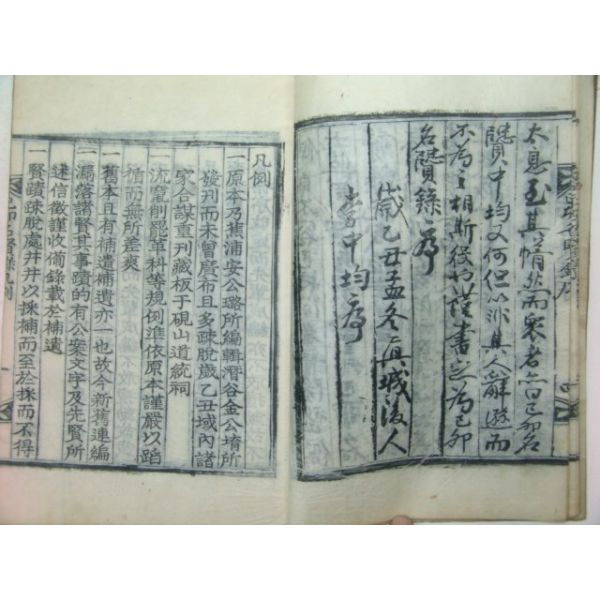 太息至其惰然而衆者曰己卯名
賢中均又何但以涉其人辭遜而
不為之相斯役也謹書之為己卯
名賢錄序
歲乙丑孟冬眞城後人
中均序
凡例
一原本乃蕉浦安公璐所編輯潛谷金公堉所
發刊而未曾廣布且多疎脫歲乙丑域內諸
家合謀重刊藏板于硯山道統祠
一流竄削罷革科等規倒準依原本謹嚴以蹈
循而無所差爽
一舊本且有補遺補遺亦一也故今新舊連編
一漏落諸賢其事蹟的有公案文字及先賢所
述信徵謹收備錄載於補遺
一賢蹟疎脫處井井以採補而至於採而不得